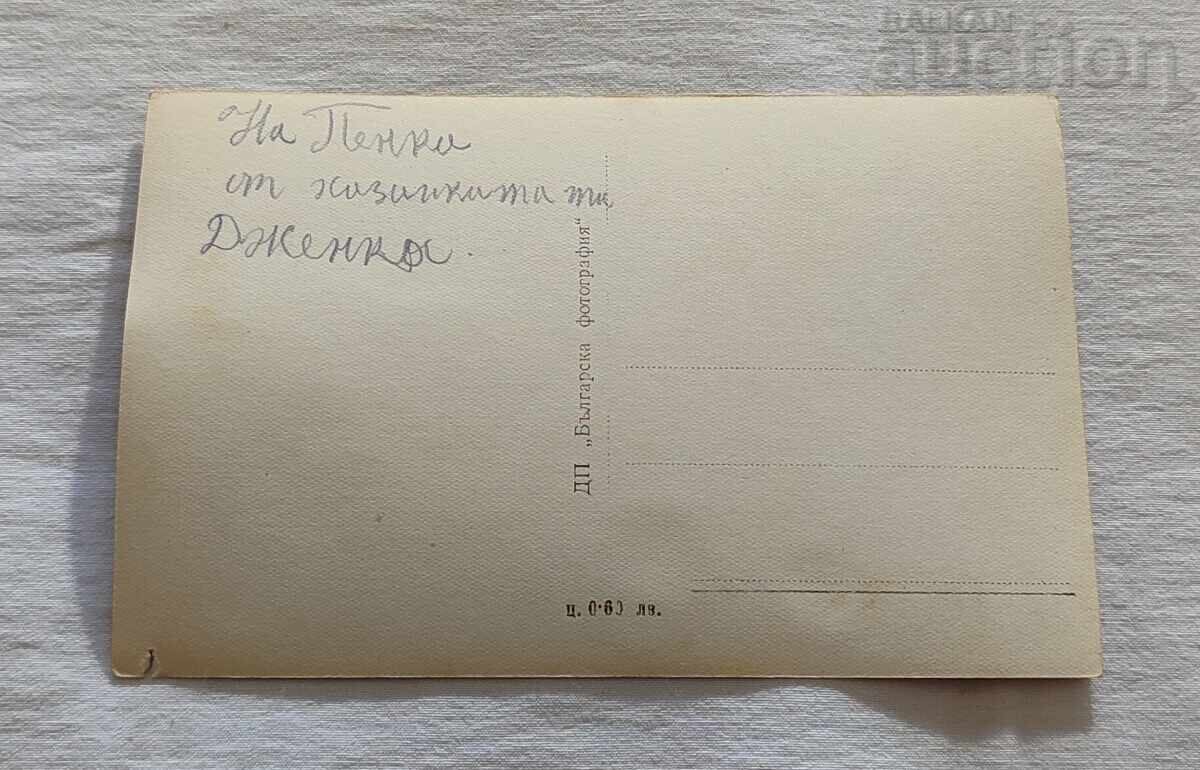 BALKAN
auction
На Пенка
от хазайката ти
Дженка.
ДП „Българска фотография“
ц. 0·60 лв.